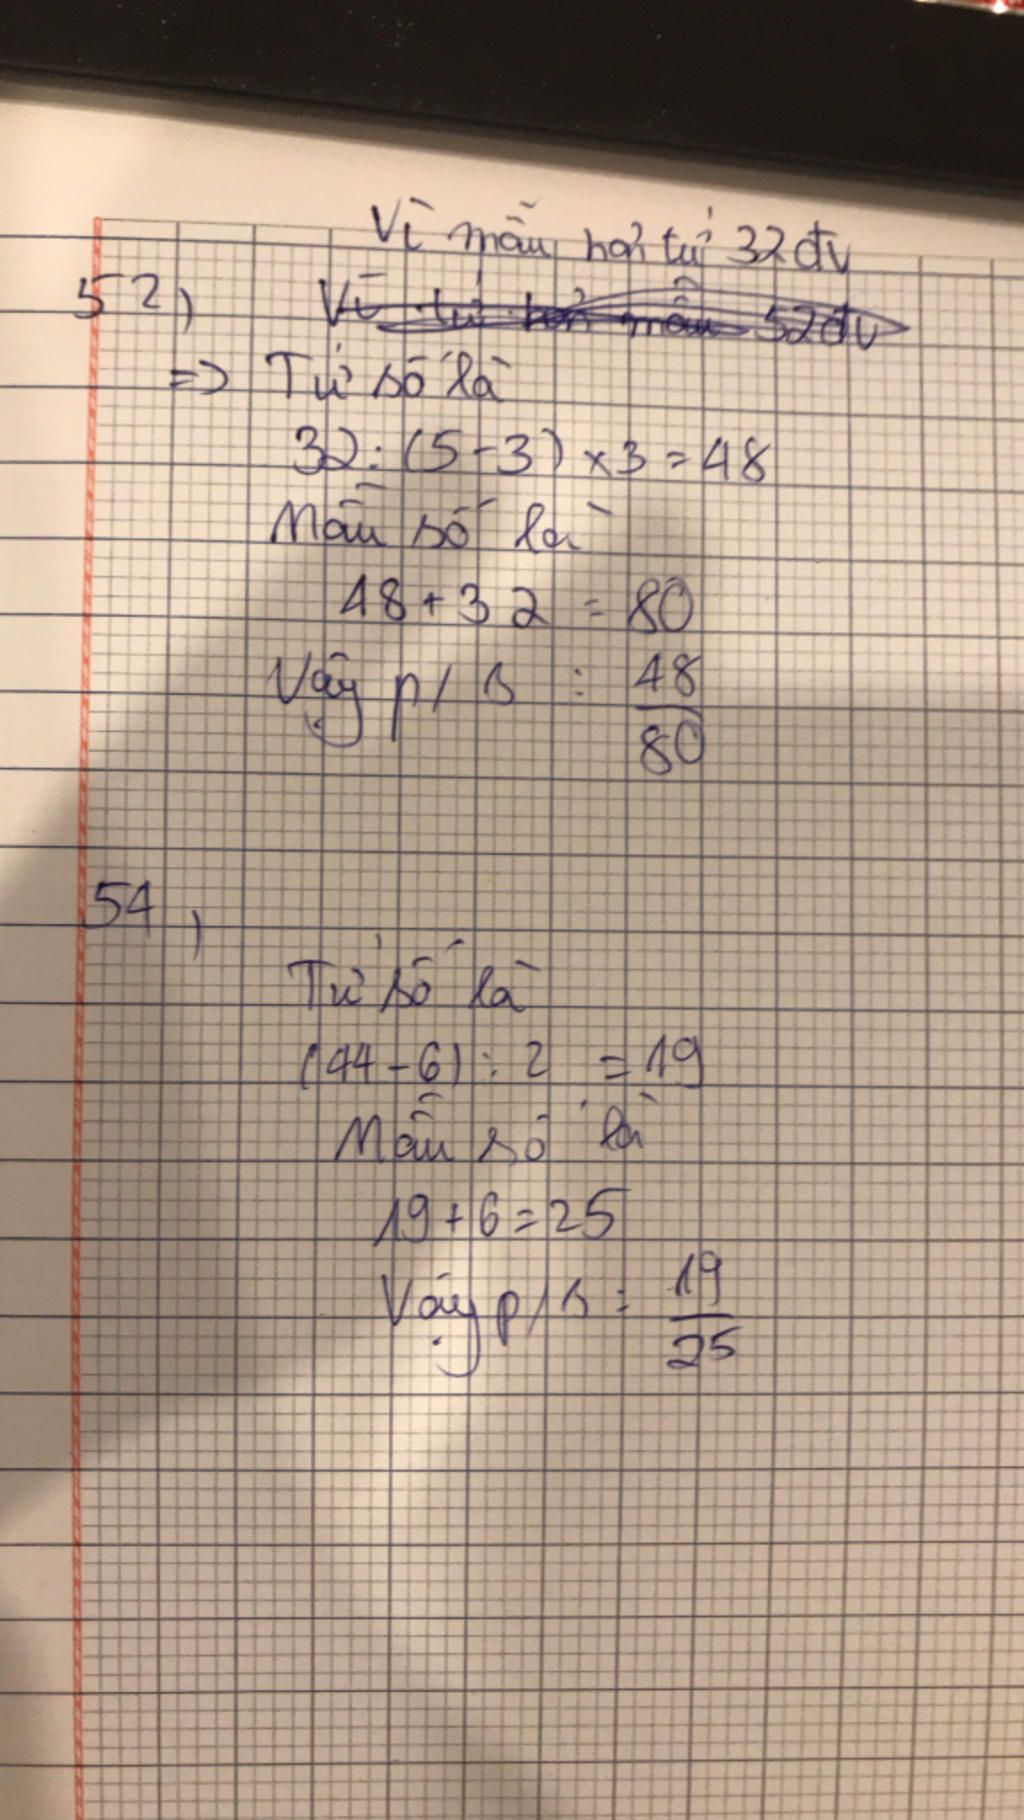 Vì mẫu hơn tử 32đv
52, Vì tử hơn mẫu 52đv
=> Tử số là
32 : (5-3) x 3 = 48
Mẫu số là
48 + 32 = 80
Vậy p/s : 48/80
54,
Tử số là
(44-6) : 2 = 19
Mẫu số là
19 + 6 = 25
Vậy p/s : 19/25